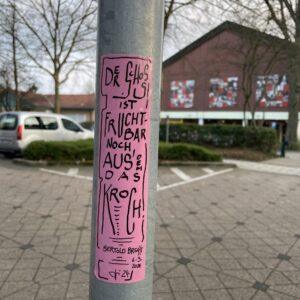 DER SCHOSS
IST
FRUCHT-
BAR
NOCH,
AUS DEM
DAS
KROCH!
BERTOLD BRECHT